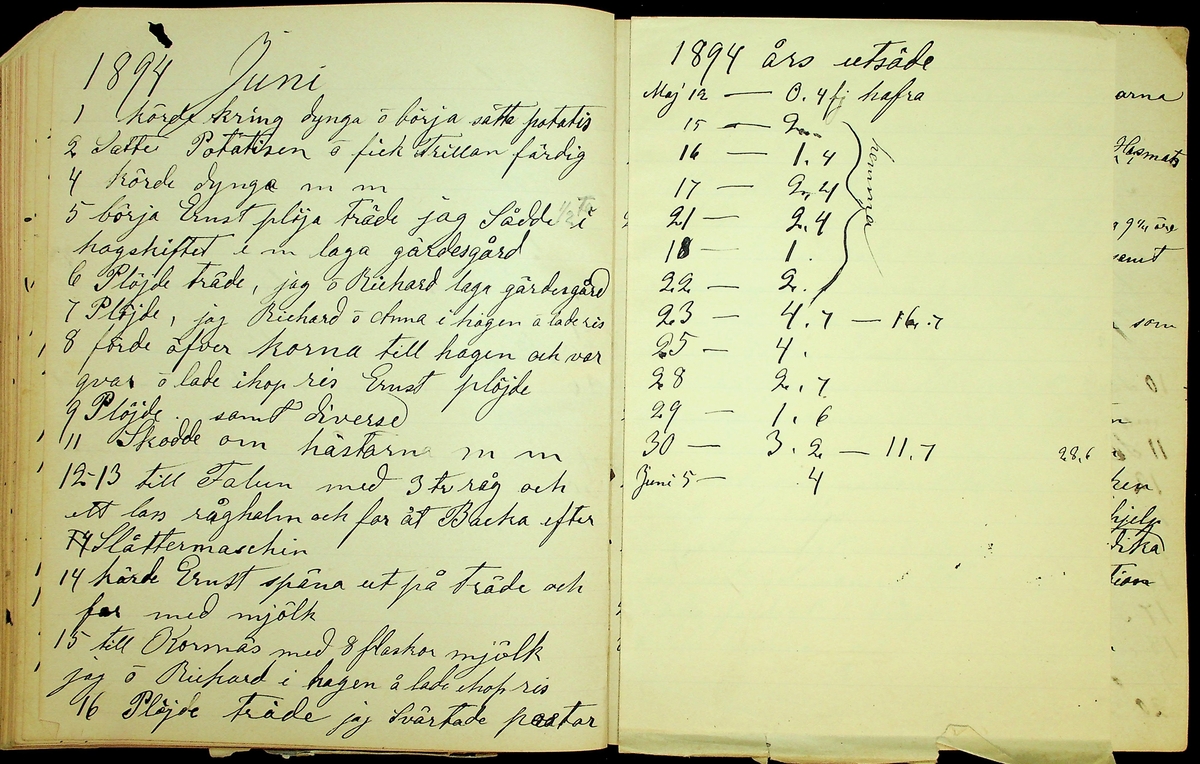 1894 Juni
1 körde kring dynga ö börja sätta potatis
2 Satte Potatisen ö fick trillan färdig
4 körde dynga m m
5 börja Ernst plöja träde jag Sådde 1/2 t i
hagskiftet i m laga gärdesgård
6 Plöjde träde, jag ö Richard laga gärdesgård
7 Plöjde, jag Richard ö Anna i hagen ö lade ris
8 förde öfver korna till hagen och var
qvar ö lade ihop ris Ernst plöjde
9 Plöjde samt diverse
11 Skodde om hästarna m m
12-13 till Falun med 3 tr råg och
ett lass råghalm och for åt Backa efter
Slåttermaschin
14 körde Ernst spåna ut på träde och
for med mjölk
15 till Kornäs med 8 flaskor mjölk
jag ö Richard i hagen å lade ihop ris
16 Plöjde träde jag Svärtade
1894 års utsäde
Maj 12 — 0.4 fj hafra
15 — 2
16 — 1.4
17 — 2.4
21 — 2.4
18 — 1.
22 — 2.
hemma
23 — 4.7 — 16.7
25 — 4.
28 2.7
29 — 1.6
30 — 3.2 — 11.7 28.6
Juni 5 — .4
arna
som
hjelp